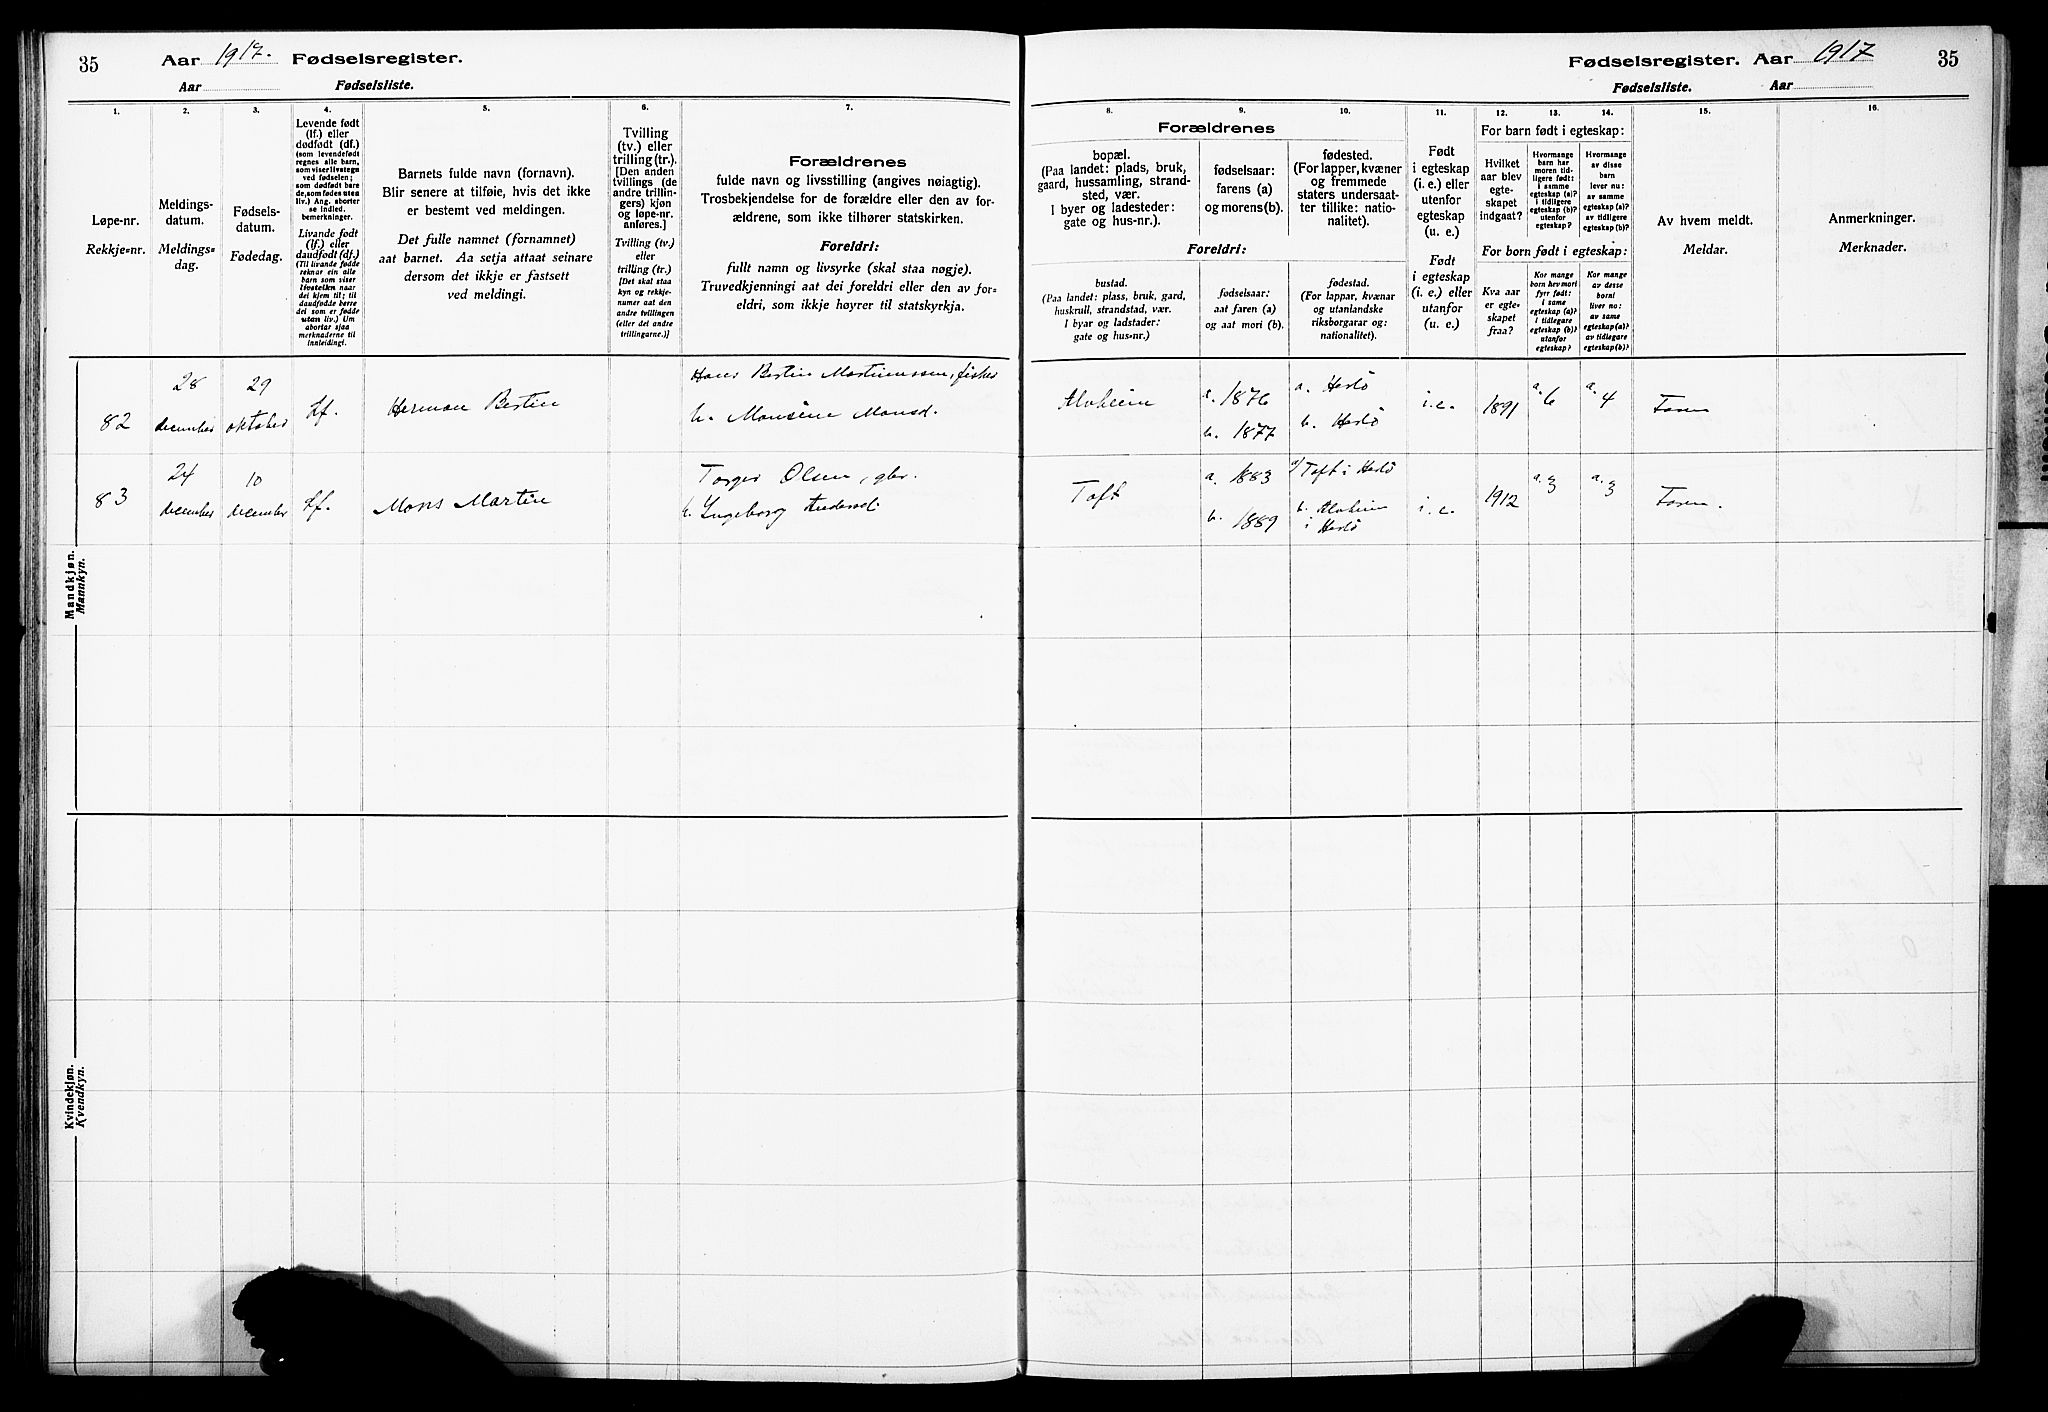 35
Aar 1917. Fødselsregister.
Aar Fødselsliste.
1.
2.
3.
4.
5.
6.
7.
Løpe-nr.
Rekkje=nr.
Meldings-
datum.
Meldings=
dag.
Fødsels-
datum.
Fødedag.
Levende født
(lf.) eller
dødfødt (df.)
(som levendefødt
regnes alle barn,
som viser livstegn
ved fødselen;
som dødfødt bare
de, som fødes uten
liv.) Ang. aborter
se indled.
bemerkninger.
Livande født
(lf.) eller
daudfødt (df.)
(Til livande fødde
reknar ein alle
barn som viser
livsteikn naar
dei kjem til; til
daudfødde berre
dei som er fødde
utan liv.) Um
abortar sjaa
merknaderne til
innleidingi.
Barnets fulde navn (fornavn).
Blir senere at tilføie, hvis det ikke
er bestemt ved meldingen.
Det fulle namnet (fornamnet)
aat barnet. Aa setja attaat seinare
dersom det ikkje er fastsett
ved meldingi.
Tvilling
(tv.) eller
trilling (tr.).
[Den anden
tvillings (de
andre trillin-
gers) kjøn
og løpe-nr.
anføres.]
Tvilling (tv.)
eller
trilling (tr.)
[Det skal staa
kyn og rekkje-
numer aat den
andre tvillingen
(eller dei andre
trillingarne.)]
Forældrenes
fulde navn og livsstilling (angives nøiagtig).
Trosbekjendelse for de forældre eller den av for-
ældrene, som ikke tilhører statskirken.
Foreldri:
fullt namn og livsyrke (skal staa nøgje).
Truvedkjenningi aat dei foreldri eller den av for=
eldri, som ikkje høyrer til statskyrkja.
Mandkjøn.
Mannkyn.
82
28
december
29
oktober
Lf.
Herman Bertin
Hans Bertin Martinussen, fisker
b. Monsine Monsd.
83
24
december
10
december
Lf.
Mons Martin
Torger Olsen, gbr.
b. Ingeborg Andersd.
Kvindekjøn.
Kvendkyn.
Fødselsregister. Aar 1917
35
Fødselsliste. Aar
8.
9.
10.
11.
12.
13.
14.
15.
16.
Forældrenes
bopæl.
(Paa landet: plads, bruk,
gaard, hussamling, strand-
sted, vær.
I byer og ladesteder:
gate og hus-nr.).
fødselsaar:
farens (a)
og morens (b).
fødested.
(For lapper, kvæner
og fremmede
staters undersaat-
ter tillike: natio-
nalitet).
Foreldri:
bustad.
(Paa landet: plass, bruk, gard,
huskrull, strandstad, vær.
I byar og ladstader:
gate og hus=nr.)
fødselsaar:
aat faren (a)
og aat mori (b).
fødestad.
(For lappar, kvænar
og utanlandske
riksborgarar og:
nationalitet).
Født
i egteskap
(i. e.) eller
utenfor
egteskap
(u. e.)
Født
i egteskap
(i. e.) eller
utanfor
(u. e.)
For barn født i egteskap:
Hvilket
aar blev
egte-
skapet
indgaat?
Hvormange
barn har
moren tid-
ligere født:
i samme
egteskap (a)?
i tidligere
egteskap (b)?
utenfor
egteskap?
Hvormange
av disse
barn
lever nu:
av samme
egteskap (a)?
av tidligere
egteskap (b)?
For born født i egteskap:
Kva aar
er egte-
skapet
fraa?
Kor mange
born hev mori
fyrr født:
i same
egteskap (a)?
i tidlegare
egteskap (b)?
utanfor
egteskap?
Kor mange
av desse
borni
liver no:
av same
egteskap (a)?
av tidlegare
egteskap (b)?
Av hvem meldt.
Meldar.
Anmerkninger.
Merknader.
Alvheim
a. 1876
b. 1877
a. Herlö
b. Herlö
i.e.
1891
a. 6
a. 4
Faren
Toft
a. 1883
b. 1889
a) Toft i Herlö
b. Alvheim
i Herlö
i.e.
1912
a. 3
a. 3
Faren.